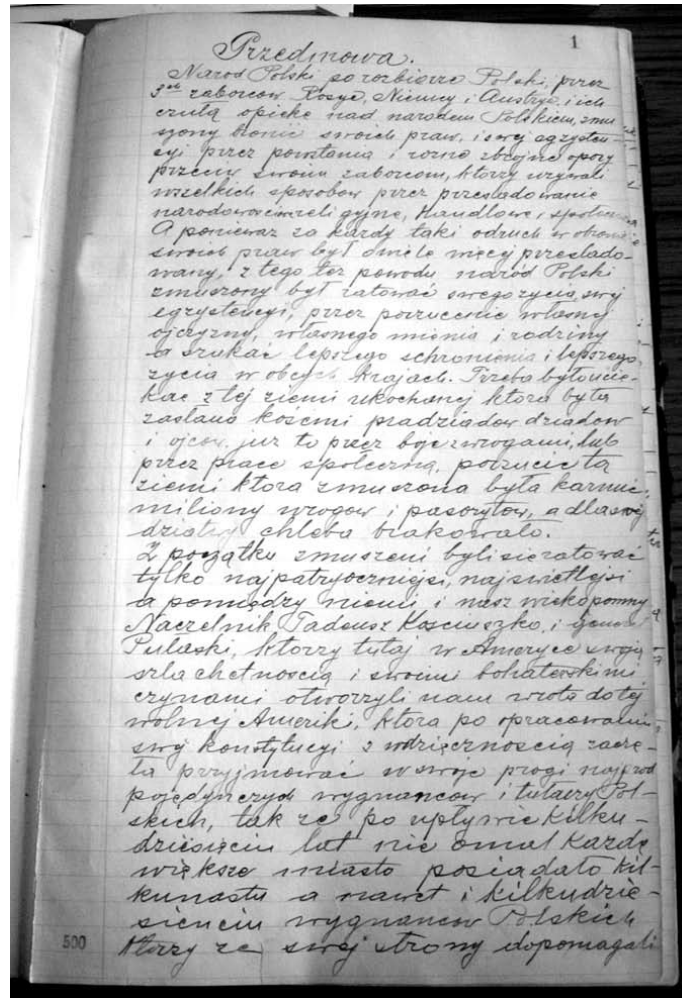 1
Przedmowa.
Narod Polski po rozbiorze Polski, przez
3ech zaborcow Rosye, Niemcy i Austrye, i ich
czułą opiekę nad narodem Polskiem, zmu
szony bronic swoich praw, i swej egzysten-
syi przez powstania i rozne zbrojne opory
przeciw swoim zaborcom, ktorzy uzywali
wszelkich sposobow przez przesladowanie
narodowosciowe religyjne, Handlowe, społeczne
A poniewaz za kazdy taki odruch w obronie
swoich praw był omele więcej przeslado-
wany, z tego tez powodu, narod Polski
zmuszony był ratować swego zycia, swej
egzystencyi, przez porzucenie własnej
ojczyzny, własnego mienia i rodziny
a szukać lepszego schronienia i lepszego
zycia w obcych Krajach. Trzeba było ucie-
kac z tej ziemi ukochanej ktora była
zasłana kośćmi pradziadow dziadow
i ojcow, juz to przez boje z wrogami, lub
przez prace społeczną, porzucic tą
ziemi ktora zmuszona była karmić
miliony wrogow i pasorzytow, a dla swej
dziatwy chleba brakowało.
Z początku zmuszeni byli sie ratować
tylko najpatryoczniejsi, najswietlejsi
a pomiędzy niemi, i nasz wiekopomny
Naczelnik Tadeusz Kosciuszko, i Generał
Pułaski, ktorzy tutaj w Ameryce swoją
szlachetnoscią i swoimi bohaterskimi
czynami otworzyli nam wrota do tej
wolnej Ameriki, ktora po opracowaniu
swej konstytucyi z wdzięcznoscią zaczę-
ła przyjmować w swoje progi najprzod
pojedyńczych wygnancow i tułaczy Pol-
skich, tak ze po upływie kilku-
dziesięciu lat nie omal Kazde
większe miasto posiadało kil-
kunastu a nawet i kilkudzie-
sieniciu wygnancow Polskich
ktorzy ze swej strony dopomagali
500